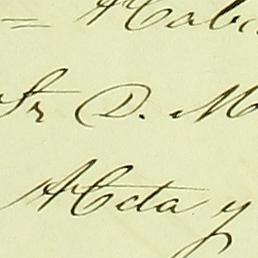 = Haba
Sr D. M
Acta y